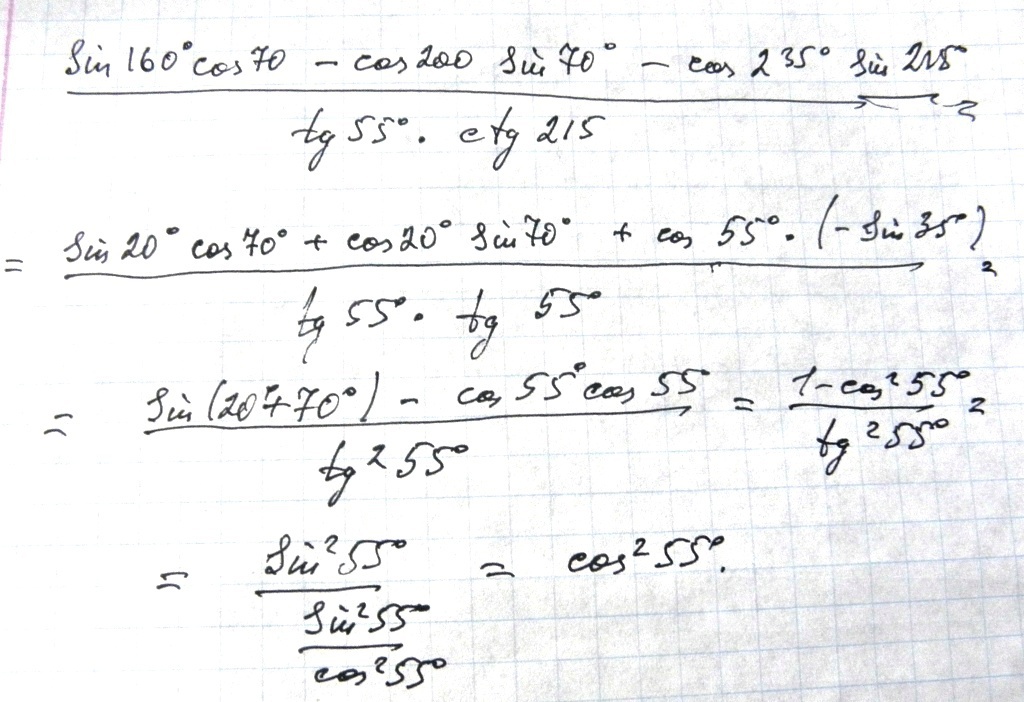 sin 160° cos 70 - cos 200 sin 70° - cos 235° sin 215° =
tg 55° · ctg 215
= sin 20° cos 70° + cos 20° sin 70° + cos 55° · (- sin 35°) =
tg 55° · tg 55°
= sin (20° + 70°) - cos 55° cos 55 = 1 - cos² 55° =
tg² 55° tg² 55°
= sin² 55° = cos² 55°.
sin² 55°
cos² 55°